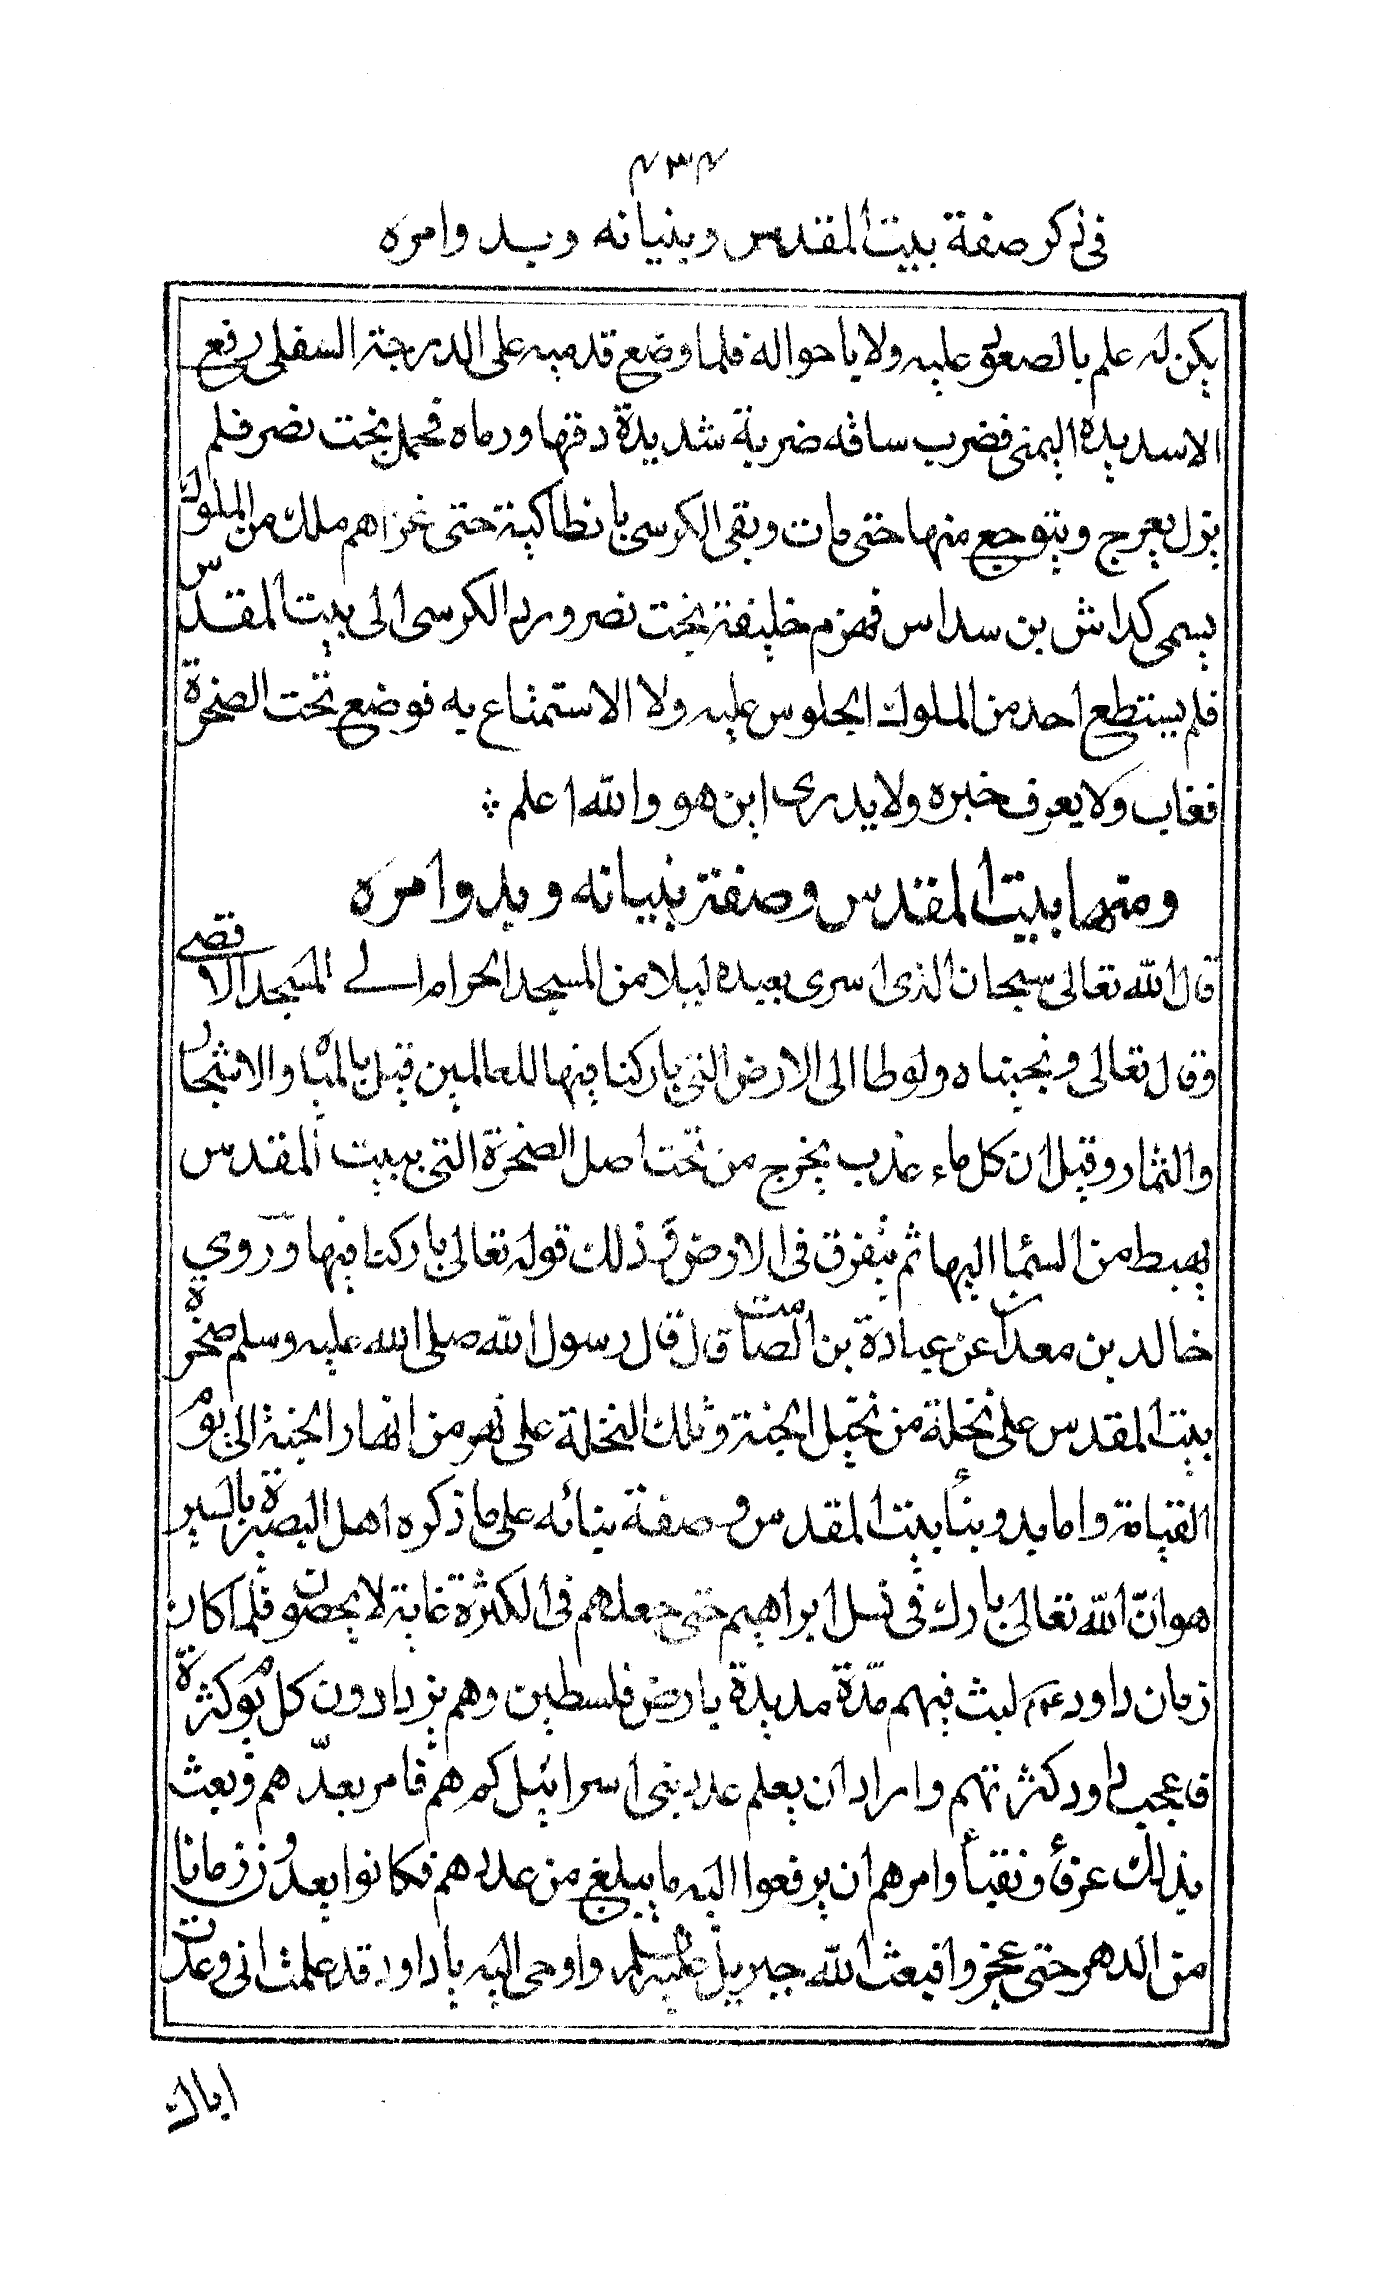 ٤٣٤
في ذكر صفة بيت المقدس وبنيانه وبدوامره
يكن له علم بالصعود عليه ولا باحواله فلما وضع قدميه على الدرجة السفلى رفع
الاسد يده اليمنى فضرب ساقه ضربة شديدة دقها ورماه فحمل بخت نصر فلم
يزل يعرج ويتوجع منها حتى مات وبقى الكرسى بانطاكية حتى غزاهم ملك من الملوك
يسمى كداش بن سداس فهزم خليفة بخت نصر ورد الكرسى الى بيت المقدس
فلم يستطع احد من الملوك الجلوس عليه ولا الاستمتاع به فوضع تحت الصخرة
فغاب ولا يعرف خبره ولا يدرى اين هو والله اعلم
ومنها بيت المقدس وصفة بنيانه وبدوامره
قال الله تعالى سبحان الذى اسرى بعبده ليلا من المسجد الحرام الى المسجد الاقصى
وقال تعالى ونجيناه ولوطا الى الارض التى باركنا فيها للعالمين قيل بالمياه والاشجار
والثمار وقيل ان كل ماء عذب يخرج من تحت اصل الصخرة التى ببيت المقدس
يهبط من السما اليها ثم يتفرق فى الارض وذلك قوله تعالى باركنا فيها وروى
خالد بن معدان عن عبادة بن الصامت قال قال رسول الله صلى الله عليه وسلم صخرة
بيت المقدس على نخلة من نخيل الجنة وتلك النخلة على نهر من انهار الجنة الى يوم
القيامة واما بدو بنأ بيت المقدس وصفة بنائه على ما ذكره اهل البصيرة بالسير
هو انّ الله تعالى بارك فى نسل ابراهيم حتى جعلهم فى الكثرة غاية لا يحصون فلما كان
زمان داود عم لبث فيهم مدّة مديدة بارض فلسطين وهم يزدادون كل يوم كثرة
فاعجب داود كثرتهم واراد ان يعلم عدد بنى اسرائيل كم هم فامر بعدّهم وبعث
بذلك عرفأ ونقبأ وامرهم ان يرفعوا اليه ما يبلغ من عددهم فكانوا يعدون زمانا
من الدهر حتى عجزوا فبعث الله جبريل عليه السلم واوحى اليه يا داود قد علمت انى وعدت
اباك